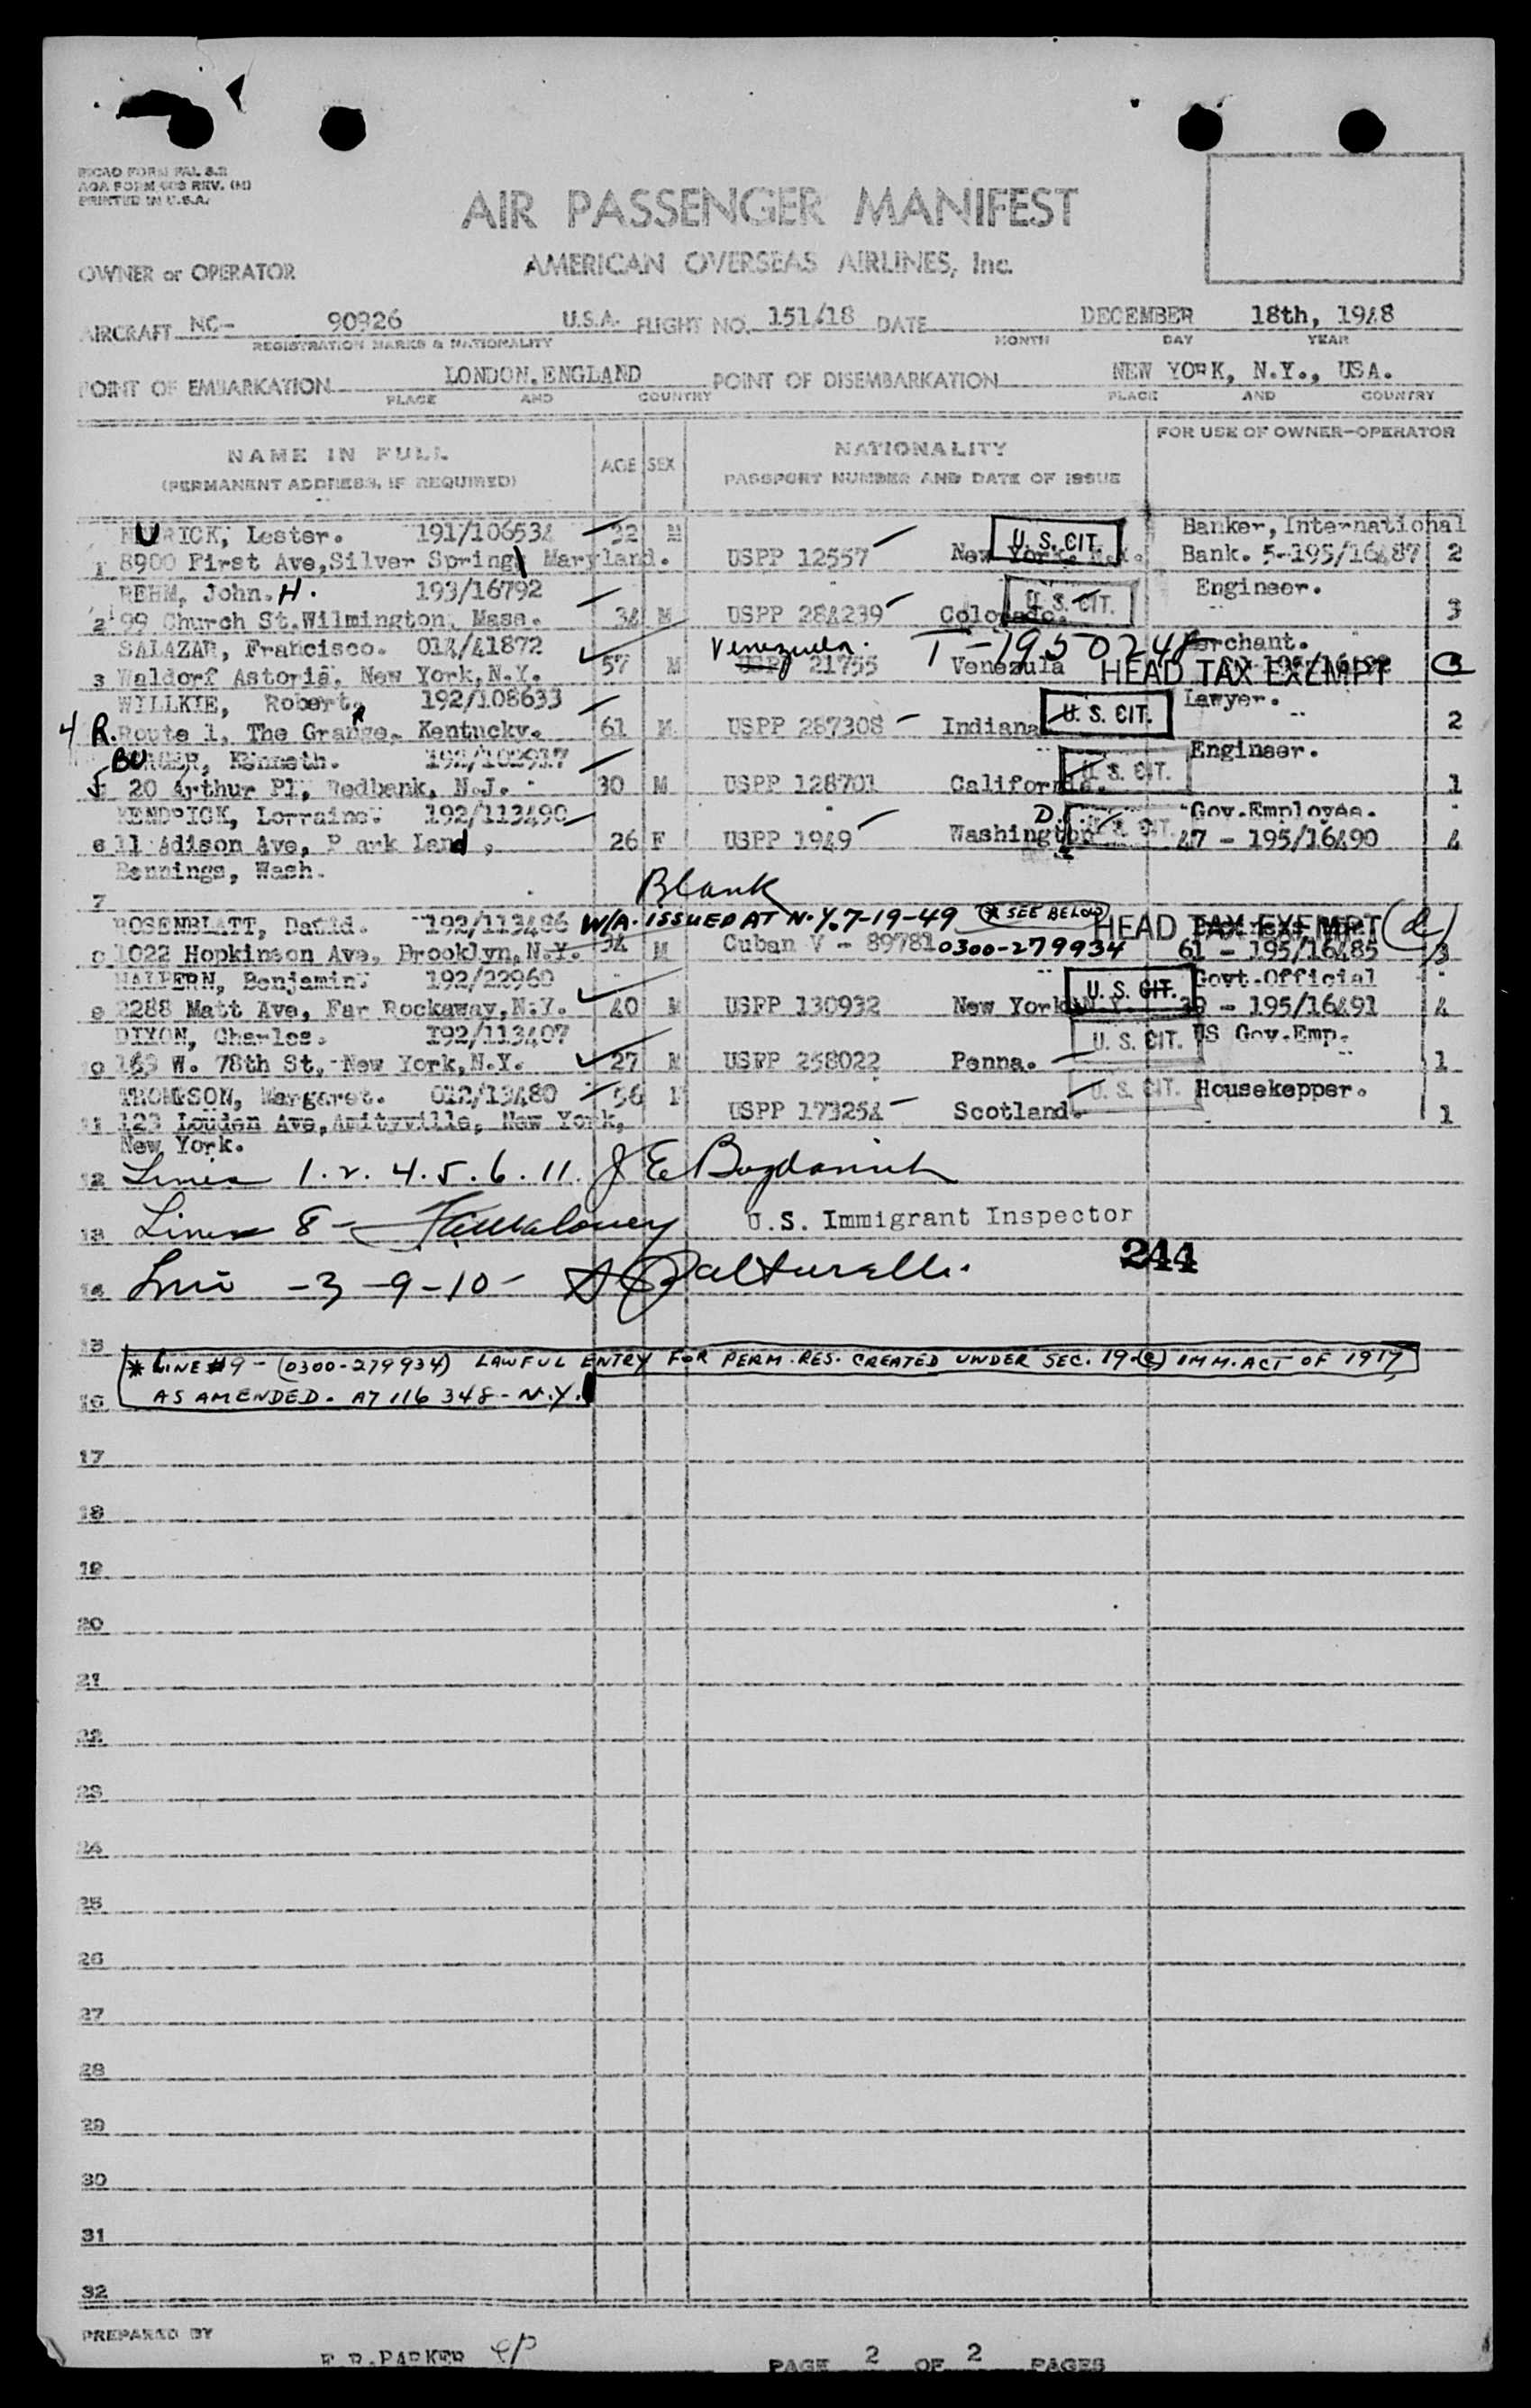 AOA FORM 608 REV. (M)
PRINTED IN U.S.A.
AIR PASSENGER MANIFEST
AMERICAN OVERSEAS AIRLINES, Inc.
OWNER or OPERATOR
AIRCRAFT NC- 90926 U.S.A. FLIGHT NO. 151/18 DATE DECEMBER 18th, 1948
REGISTRATION MARKS & NATIONALITY MONTH DAY YEAR
POINT OF EMBARKATION LONDON, ENGLAND POINT OF DISEMBARKATION NEW YORK, N.Y., USA.
PLACE AND COUNTRY PLACE AND COUNTRY
NAME IN FULL AGE SEX NATIONALITY FOR USE OF OWNER-OPERATOR
(PERMANENT ADDRESS, IF REQUIRED) PASSPORT NUMBER AND DATE OF ISSUE
Lester. 191/106534 32 M U. S. CIT. Banker, International
1 8900 First Ave, Silver Spring Maryland. USPP 12557 New York. N.Y. Bank. 5-195/16487 2
REHM, John. H. 193/16792 U. S. CIT. Engineer.
2 99 Church St. Wilmington, Mass. 34 M USPP 284239 Colorado. 3
SALAZAR, Francisco. 014/41872 Venezuela. T-1950248 Merchant.
3 Waldorf Astoria, New York, N.Y. 57 M 21755 Venezula HEAD TAX EXEMPT
WILLKIE, Robert. 192/108633 U. S. CIT. Lawyer.
4 R. Route 1, The Grange, Kentucky. 61 M USPP 287308 Indiana 2
Kenneth. 192/102917 U. S. CIT. Engineer.
5 20 Arthur Pl, Redbank, N.J. 30 M USPP 128701 California. 1
KENDRICK, Lorraine. 192/113490 D. U. S. CIT. Gov. Employee.
6 11 Adison Ave, P ark Land, 26 F USPP 1949 Washington 47 - 195/16490 4
Bennings, Wash.
7 Blank
ROSENBLATT, David. 192/113486 W/A. ISSUED AT N.Y. 7-19-49 (* SEE BELOW) HEAD TAX EXEMPT (d)
1022 Hopkinson Ave, Brooklyn, N.Y. 34 M Cuban V - 89781 0300-279934 61 - 195/16485 3
HALPERN, Benjamin. 192/22960 U. S. CIT. Govt. Official
9 2288 Matt Ave, Far Rockaway, N.Y. 40 M USPP 130932 New York N.Y. 39 - 195/16491 4
DIXON, Charles. 192/113407 U. S. CIT. US Gov. Emp.
10 163 W. 78th St, New York, N.Y. 27 M USPP 258022 Penna. 1
THOMSON, Margaret. 012/13480 56 F U. S. CIT. Housekepper.
11 123 Louden Ave, Amityville, New York, USPP 173254 Scotland. 1
New York.
12 Lines 1. 2. 4. 5. 6. 11. J E Bogdanich
13 Line 8 - U.S. Immigrant Inspector
244
14 Line -3-9-10-
15
* LINE #9 - (0300-279934) LAWFUL ENTRY FOR PERM. RES. CREATED UNDER SEC. 19-(c) IMM. ACT OF 1917,
16 AS AMENDED. A7 116 348 - N.Y.
17
18
19
20
21
22
23
24
25
26
27
28
29
30
31
32
PREPARED BY
E.R. PARKER
PAGE 2 OF 2 PAGES